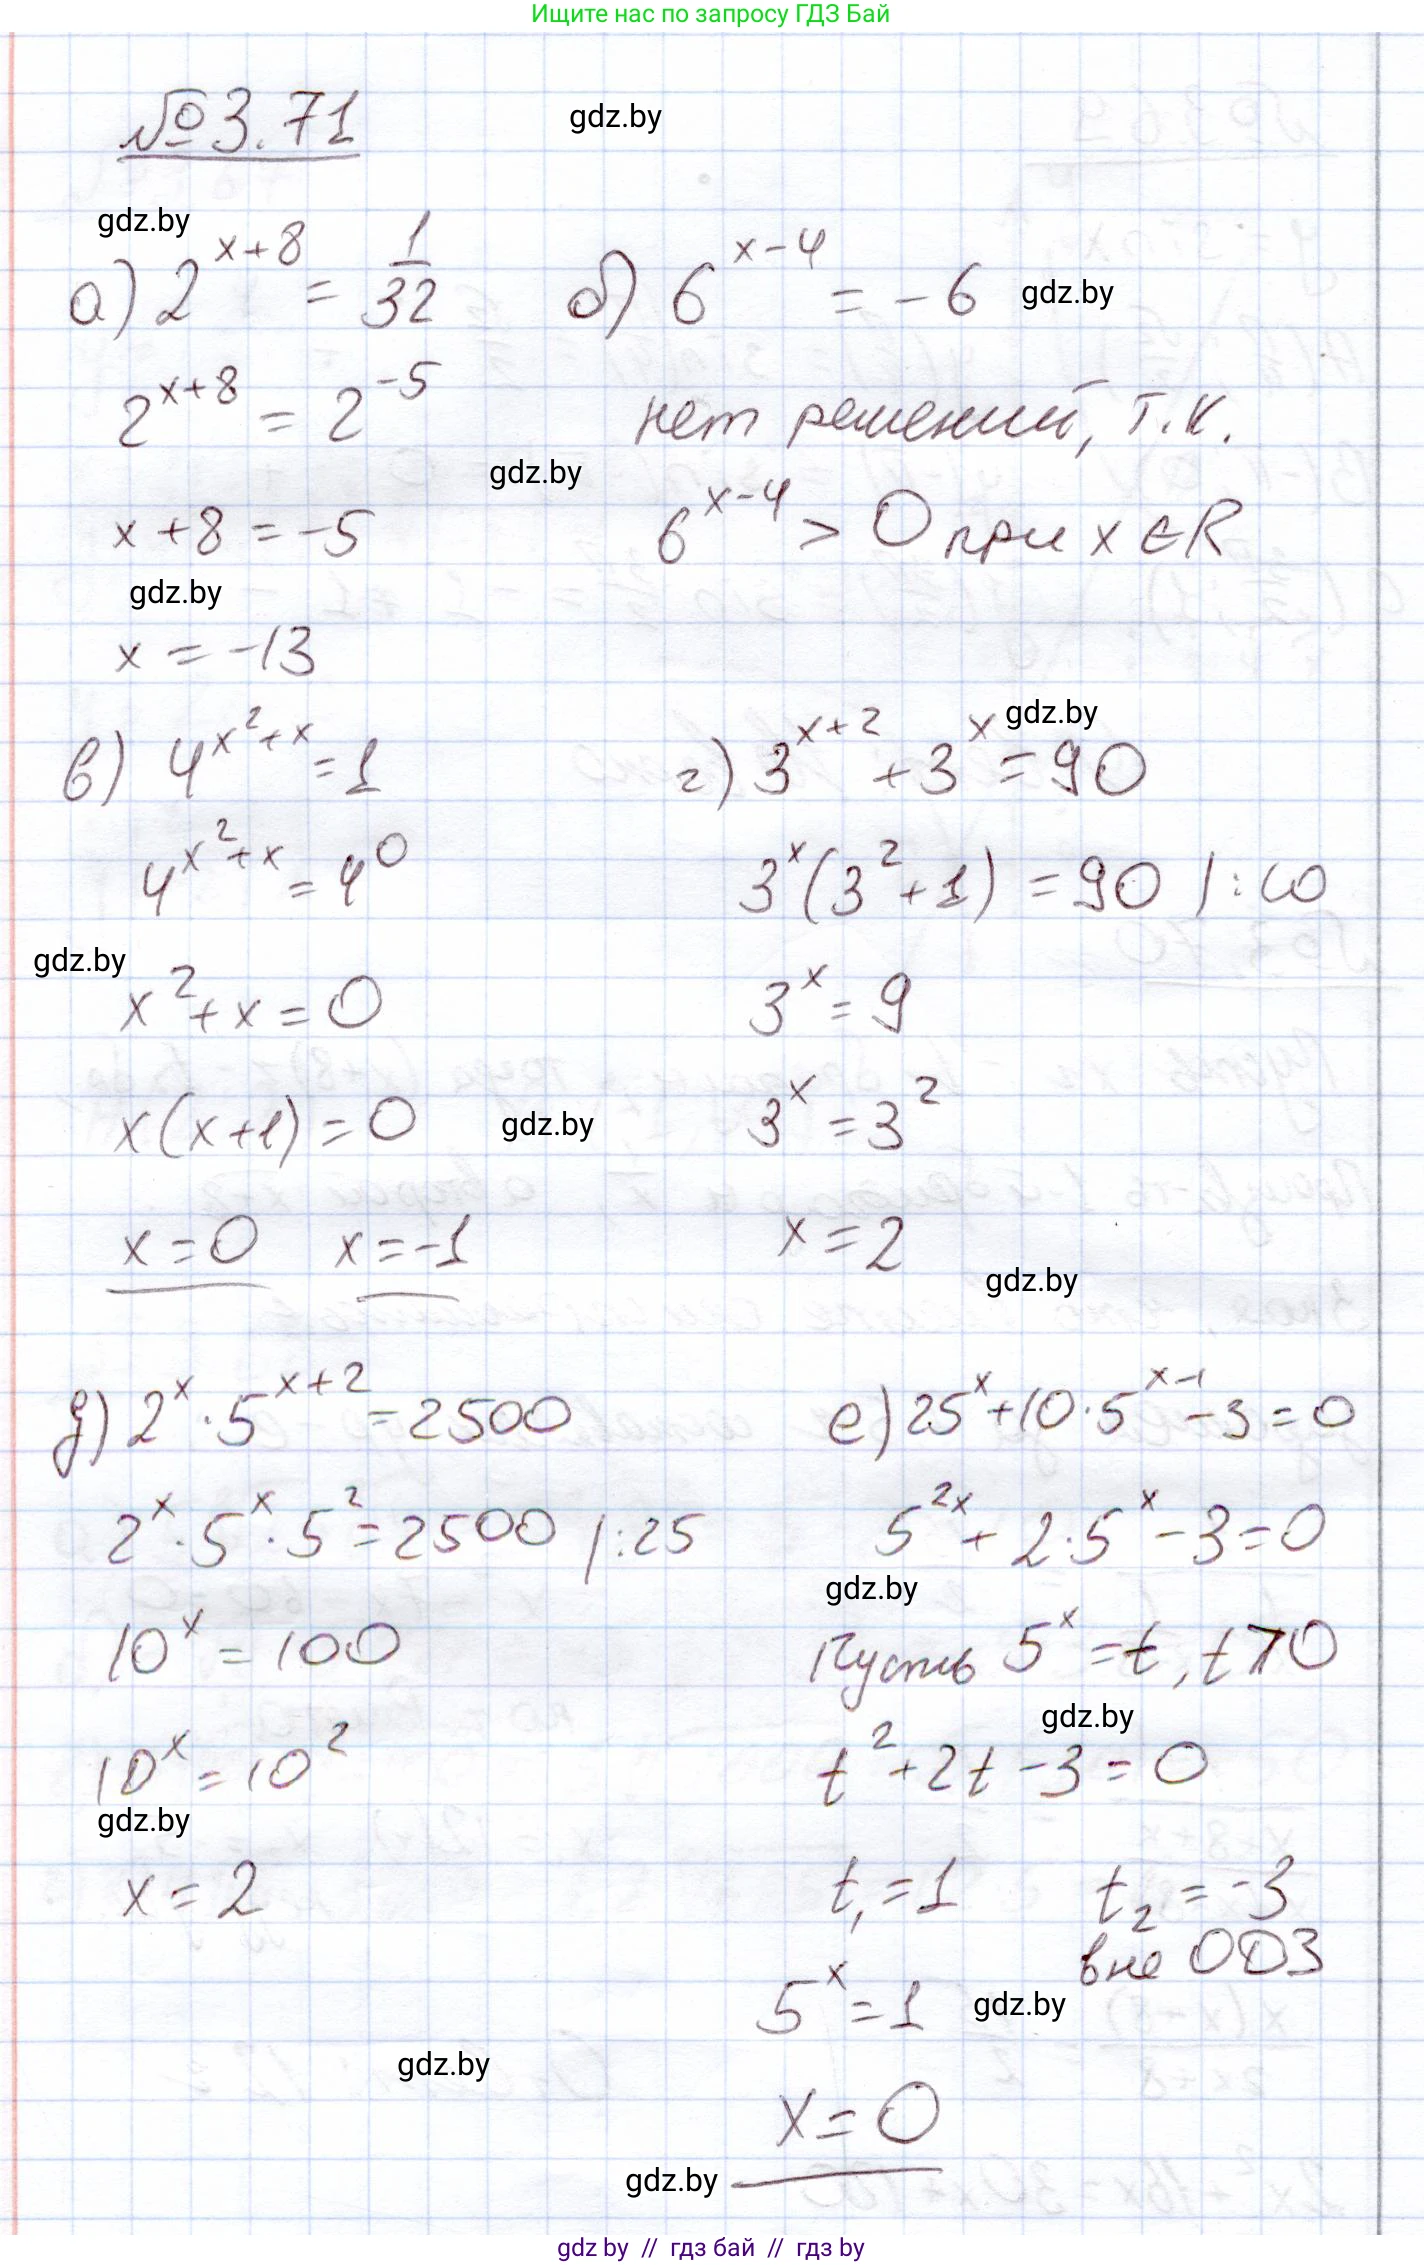 Ищите нас по запросу ГДЗ Бай
№3.71
gdz.by
gdz.by
а) 2^{x+8} = 1/32
б) 6^{x-4} = -6
gdz.by
2^{x+8} = 2^{-5}
нет решений, т.к.
gdz.by
x+8 = -5
6^{x-4} > 0 при x ∈ R
gdz.by
x = -13
gdz.by
в) 4^{x^2+x} = 1
г) 3^{x+2} + 3^x = 90
4^{x^2+x} = 4^0
3^x(3^2+1) = 90 |:10
gdz.by
x^2+x = 0
3^x = 9
x(x+1) = 0
gdz.by
3^x = 3^2
x = 0 x = -1
x = 2
gdz.by
д) 2^x · 5^{x+2} = 2500
е) 25^x + 10·5^{x-1} - 3 = 0
2^x · 5^x · 5^2 = 2500 |:25
5^{2x} + 2·5^x - 3 = 0
gdz.by
10^x = 100
Пусть 5^x = t, t>0
gdz.by
10^x = 10^2
t^2 + 2t - 3 = 0
gdz.by
x = 2
t_1 = 1 t_2 = -3
вне ОДЗ
5^x = 1
gdz.by
gdz.by
x = 0
gdz.by
gdz.by // гдз бай // гдз by